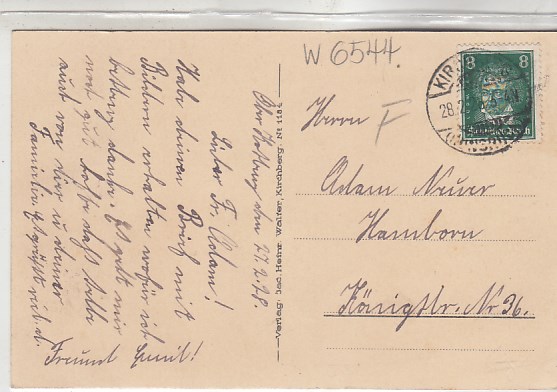 W 6544.
Ober Kostenz den 27.2.28.
Lieber Fr. Adam!
Habe deinen Brief mit
Bildern erhalten wofür ich
bestens danke. Es geht mir
noch gut hoffe daß
auch von dir u. deiner
Familie. Es grüßt dich d.
Freund Emil!
Verlag: Jac. Heinr. Walter, Kirchberg. Nr 1184
F
8 8
KIR
28.2.28
Herrn
Adam Neuer
Hamborn
Königstr. Nr 36.